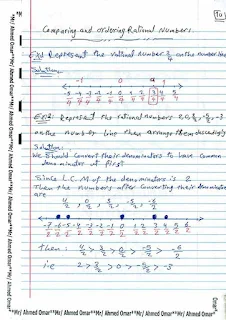 Comparing and ordering Rational Numbers
Ex1 Represent the rational number 3/4 on the number line
Solution
-1 0 1
-5/4 -4/4 -3/4 -2/4 -1/4 0 1/4 2/4 3/4 4/4 5/4
Ex2: Represent the rational numbers 2, 0, 3/2, -5/2, -3
on the number line then arrange them descendingly
Solution:
We should convert their denominators to have common
denominator at first
Since L.C.M of the denominators is 2
Then the numbers after converting their denominators
are 4/2, 0/2, 3/2, -5/2, -6/2
-7/2 -6/2 -5/2 -4/2 -3/2 -2/2 -1/2 0 1/2 2/2 3/2 4/2 5/2
then: 4/2 > 3/2 > 0/2 > -5/2 > -6/2
i.e 2 > 3/2 > 0 > -5/2 > -3
*Mr/ Ahmed Omar**Mr/ Ahmed Omar**Mr/ Ahmed Omar**Mr/ Ahmed Omar*